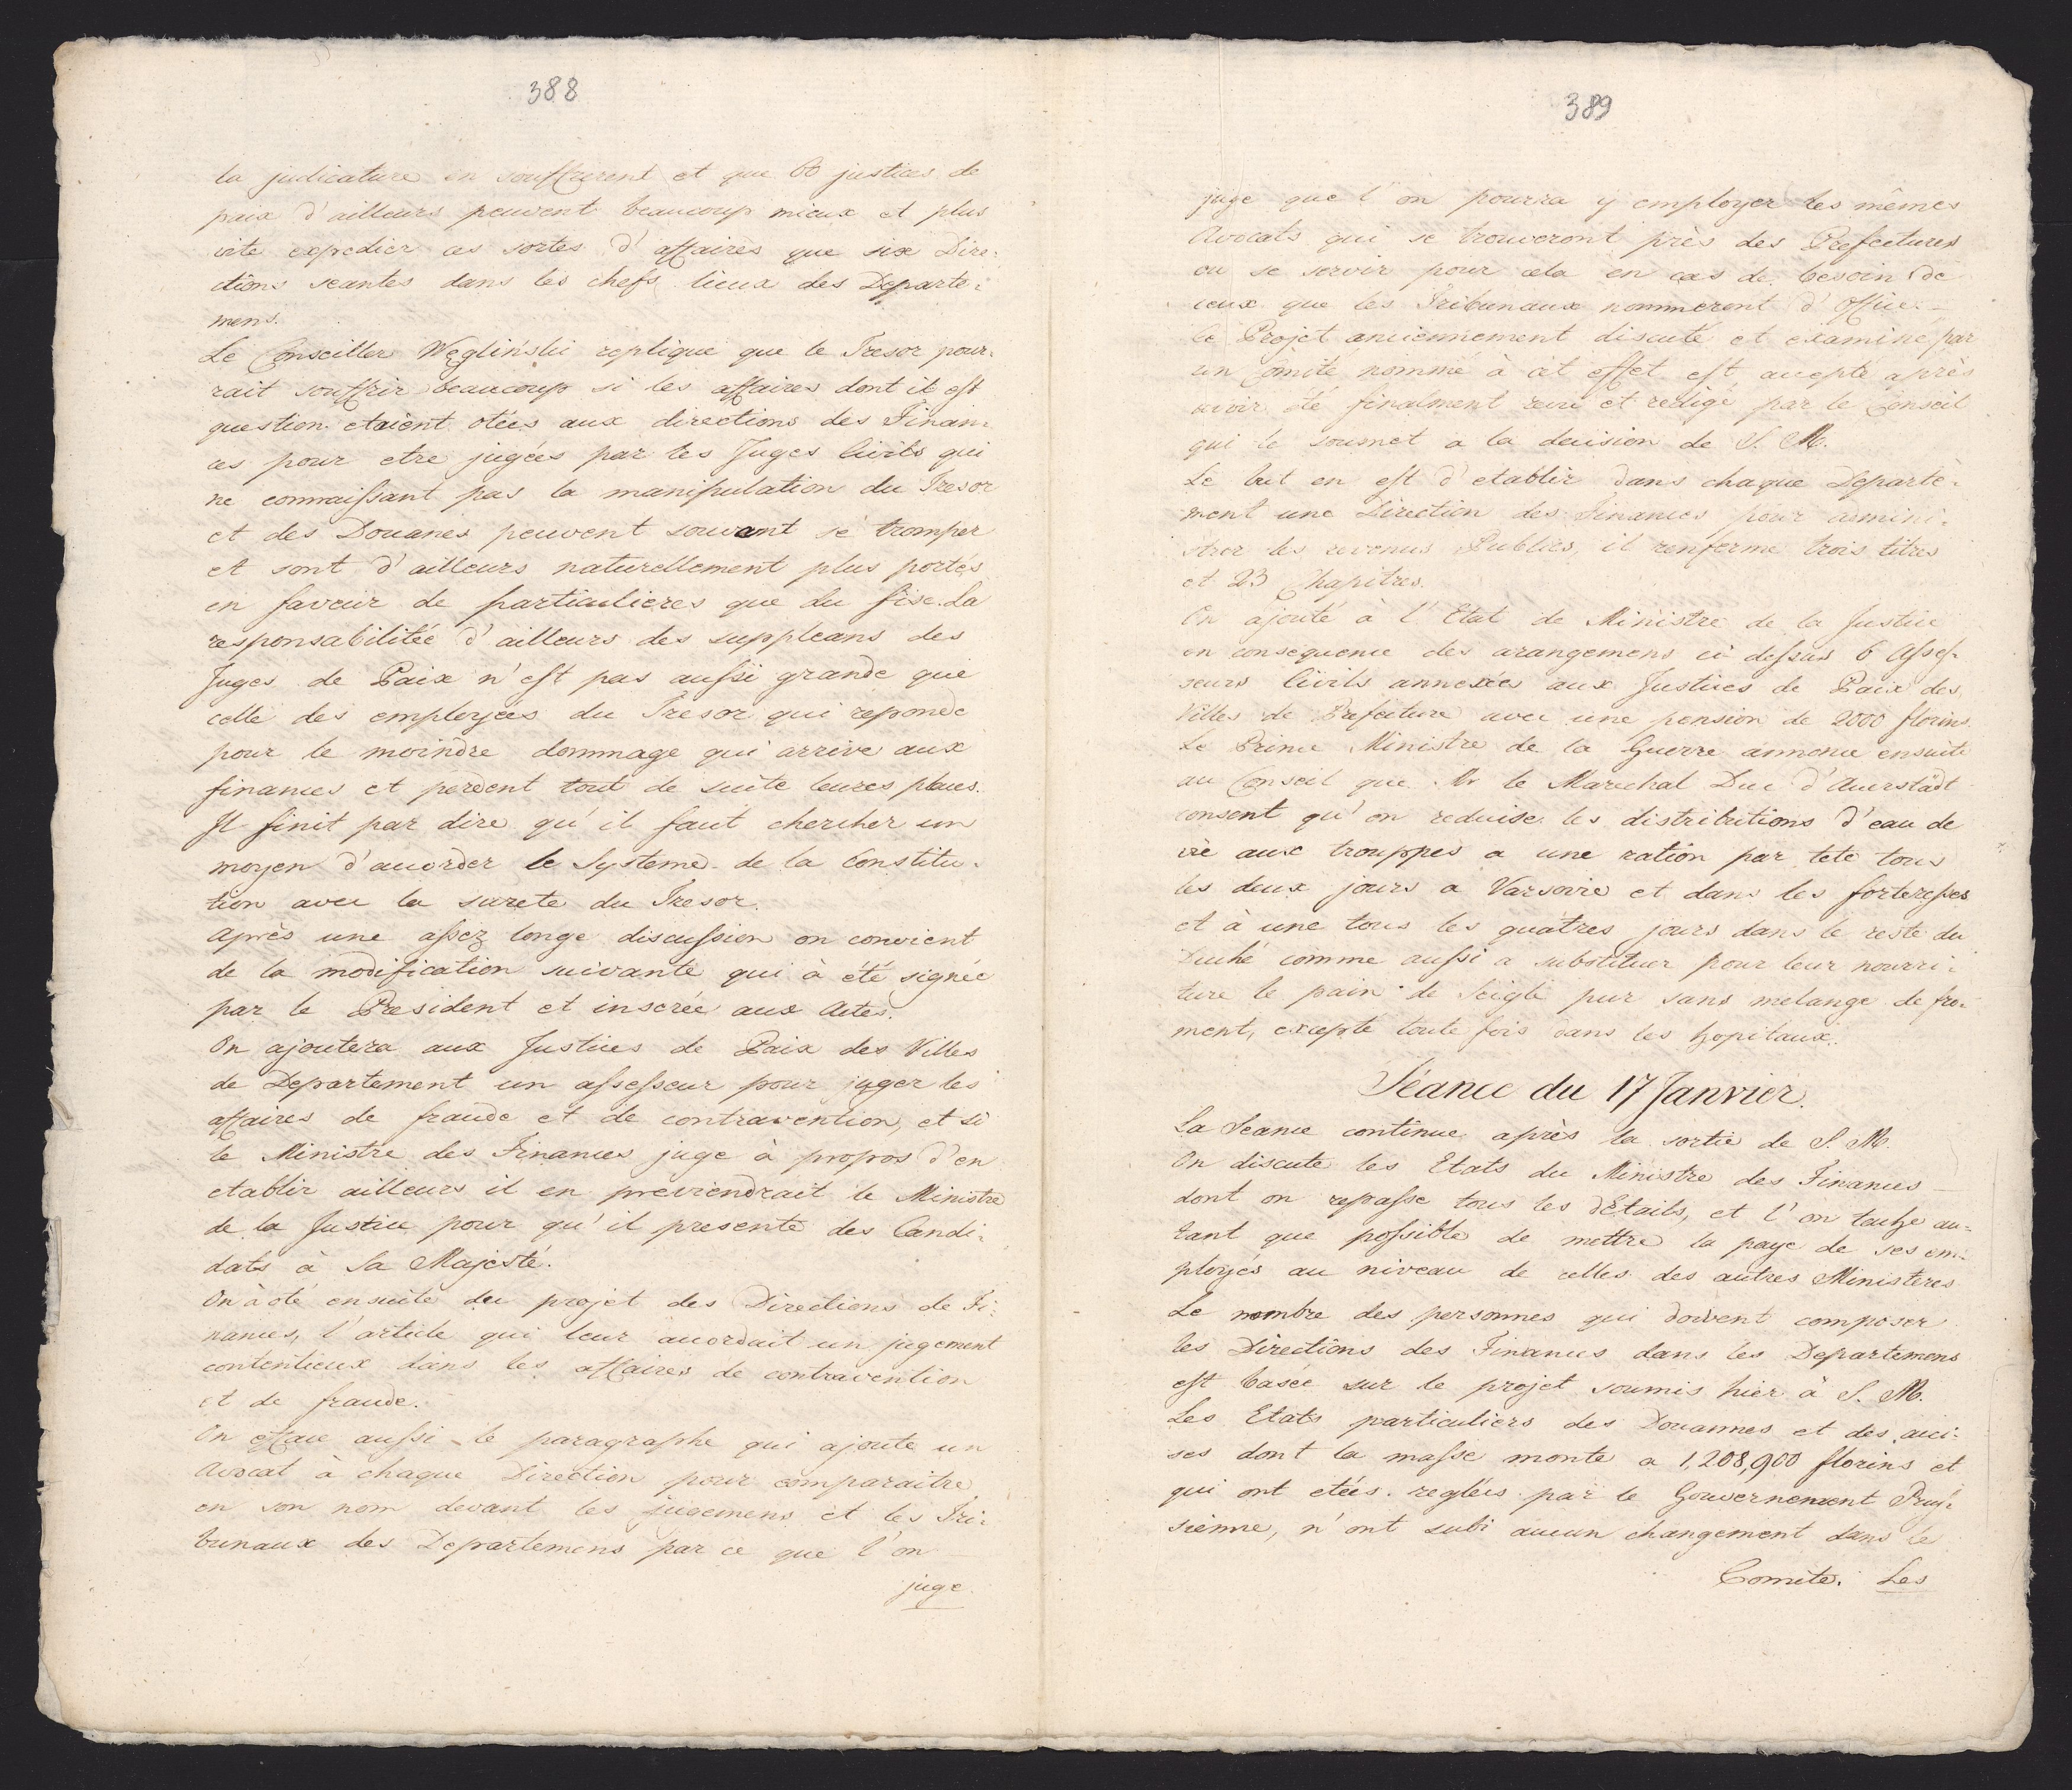 388
la judicature en souffrirent et que 60 justices de
paix d'ailleurs peuvent beaucoup mieux et plus
vite expedier ces sortes d'affaires que six Dire-
ctions seantes dans les chefs lieux des Departe-
mens.
Le Conseiller Węgliński replique que le Tresor pour-
rait souffrir beaucoup si les affaires dont il est
question etaient otées aux directions des Finan-
ces pour etre jugées par les Juges Civils qui
ne connaissant pas la manipulation du Tresor
et des Douanes peuvent souvant se tromper
et sont d'ailleurs naturellement plus portés
en faveur de particulieres que du fisc. La
responsabilitée d'ailleurs des suppleans des
Juges de Paix n'est pas aussi grande que
celle des employées du Tresor qui reponde
pour le moindre dommage qui arrive aux
finances et perdent tout de suite leures places.
Il finit par dire qu'il faut chercher un
moyen d'accorder le Systeme de la Constitu-
tion avec la surete du Tresor.
Après une assez longe discussion on convient
de la modification suivante qui à été signée
par le President et inserée aux Actes.
On ajoutera aux Justices de Paix des Villes
de Departement un assesseur pour juger les
affaires de fraude et de contravention, et si
le Ministre des Finances juge à propos d'en
etablir ailleurs il en previendrait le Ministre
de la Justice pour qu'il presente des Candi-
dats à Sa Majesté.
On à oté ensuite du projet des Directions de Fi-
nances, l'article qui leur accordait un jugement
contentieux dans les affaires de contravention
et de fraude.
On efface aussi le paragraphe qui ajoute un
Avocat à chaque Direction pour comparaitre
en son nom devant les jugemens et les Tri-
bunaux des Departemens par ce que l'on
juge
389
juge que l'on pourra y employer les mêmes
Avocats qui se trouveront près des Prefectures
ou se servir pour cela en cas de besoin de
ceux que les Tribunaux nommeront d'Office.
Ce Projet anciennement discuté et examiné par
un Comité nommé à cet effet est accepté après
avoir été finalment revu et redigé par le Conseil
qui le soumet a la decision de S. M.
Le but en est d'etablir dans chaque Departe-
ment une Direction des Finances pour admini-
strer les revenus Publics, il renferme trois titres
et 23 Chapitres.
On ajouté à l'Etat de Ministre de la Justice
en consequence des arangemens ci dessus 6 Asses-
seurs Civils annexées aux Justices de Paix des
Villes de Prefecture avec une pension de 2000 florins.
Le Prince Ministre de la Guerre annonce ensuite
au Conseil que Mr le Marechal Duc d'Auerstädt
consent qu'on reduise les distributions d'eau de
vie aux trouppes a une ration par tete tous
les deux jours a Varsovie et dans les forteresses
et à une tous les quatres jours dans le reste du
Duché comme aussi a substituer pour leur nourri-
ture le pain de Seigle pur sans melange de fro-
ment, excepte toute fois dans les hopitaux.
Séance du 17 Janvier.
La Seance continue après la sortie de S. M.
On discute les Etats du Ministre des Finances
dont on repasse tous les details, et l'on tache au-
tant que possible de mettre la paye de ses em-
ployés au niveau de celles des autres Ministeres
Le nombre des personnes qui doivent composer
les Directions des Finances dans les Departemens
est basée sur le projet soumis hier à S. M.
Les Etats particuliers des Douannes et des acci-
ses dont la masse monte a 1,208,900 florins et
qui ont etées reglées par le Gouvernement Prus-
sienne, n'ont subi aucun changement dans le
Comite. Les